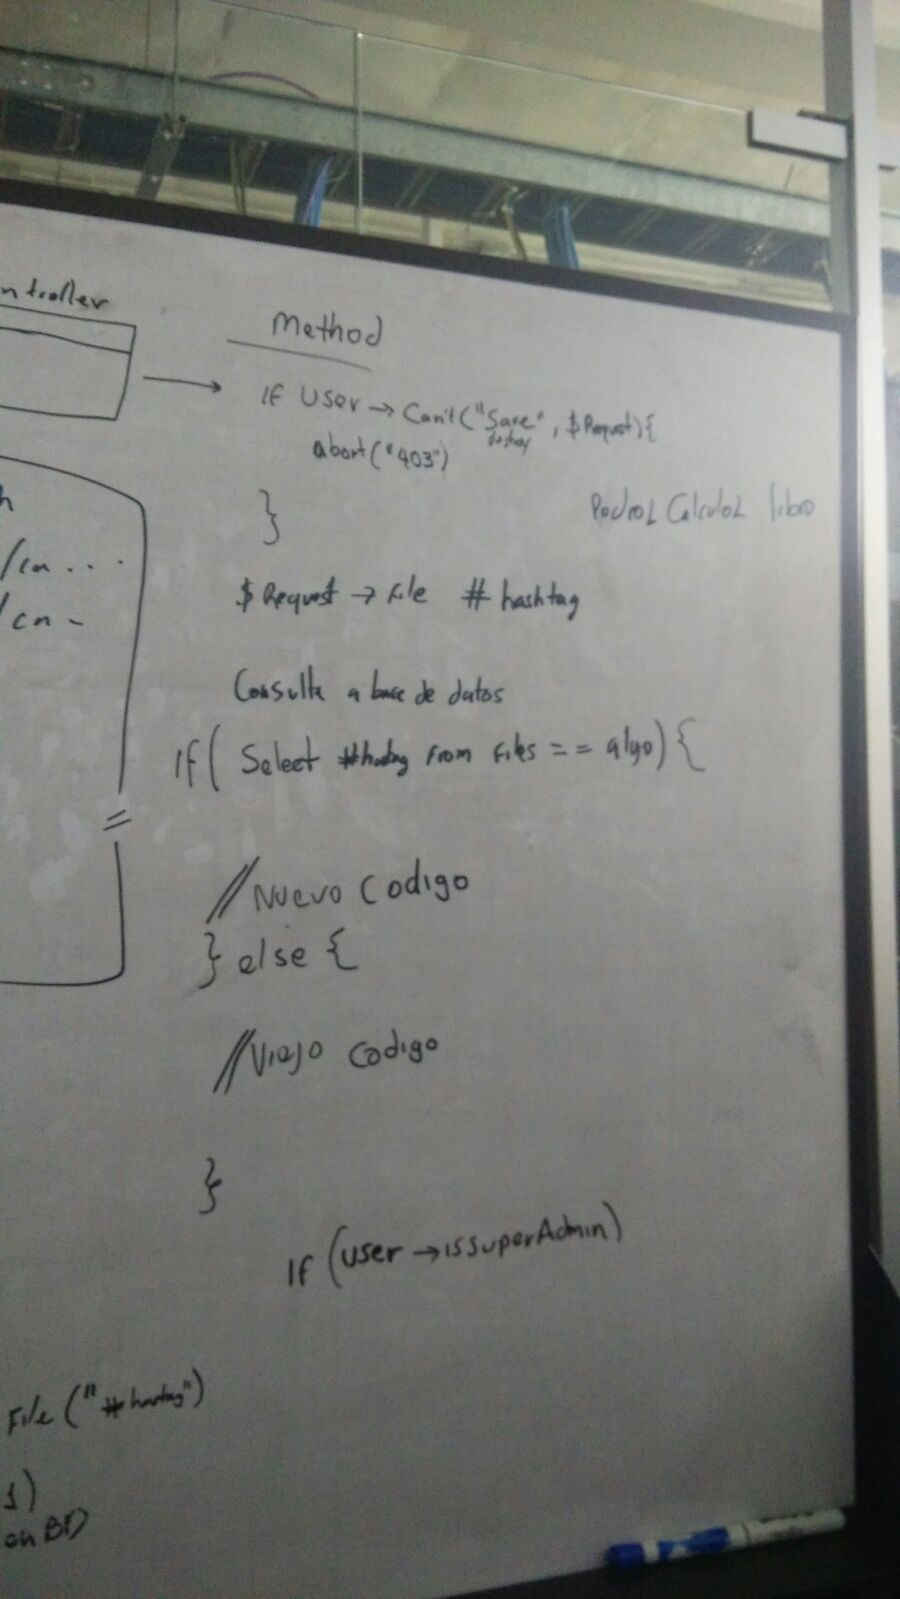 ntroller
Method
If User → Can't("Save", $Request){
destroy
abort("403")
}
$Request → File #hashtag
Consulta a base de datos
If( Select #hashtag From Files == algo){
//Nuevo Codigo
} else {
//Viejo Codigo
}
If (user → isSuperAdmin)
/cn ...
/cn -
=
File ("#hashtag")
1)
en BD